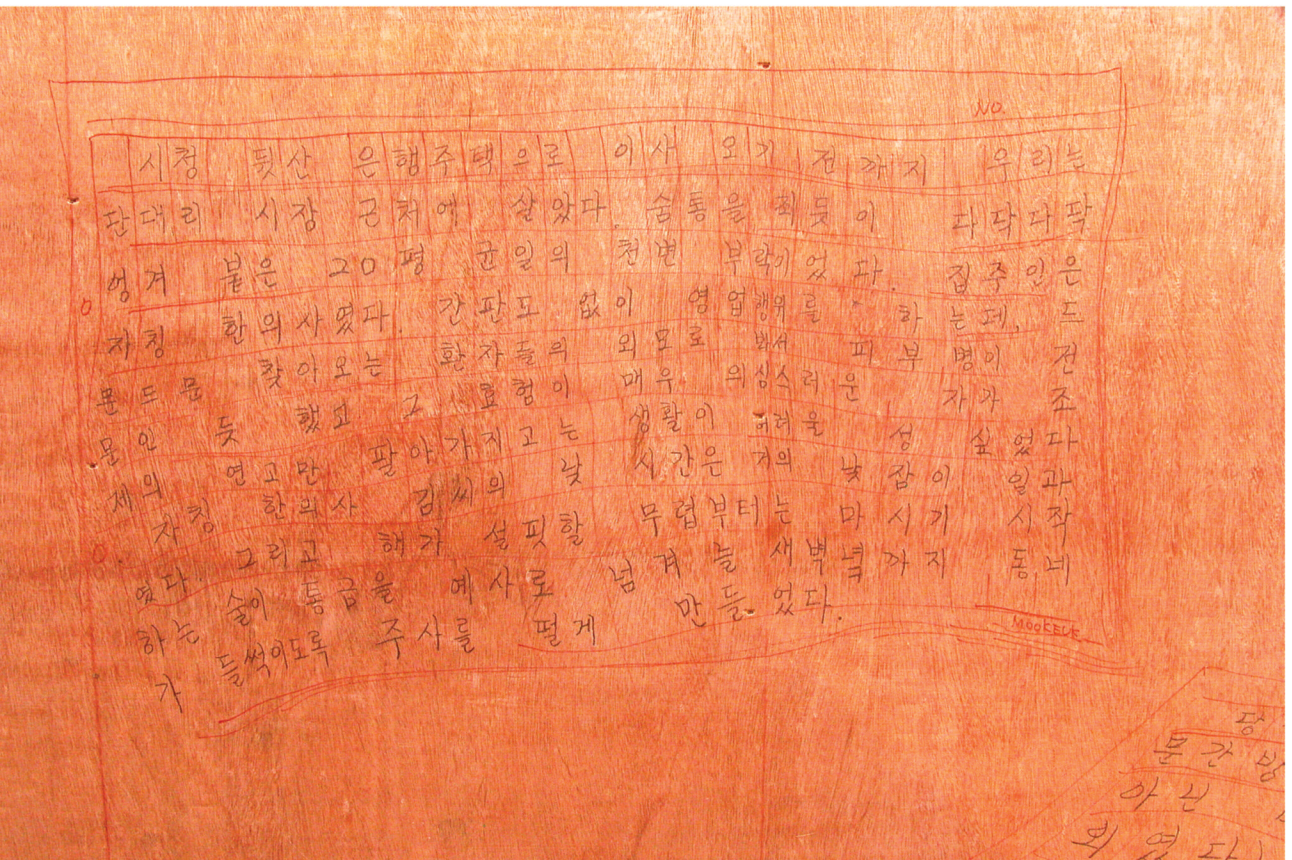 NO.
시청 뒷산 은행주택으로 이사 오기 전까지 우리는
단대리 시장 근처에 살았다. 숨통을 죄듯이 다닥다닥
엉겨 붙은 20평 균일의 천변 부락이었다. 집주인은
자칭 한의사였다. 간판도 없이 영업행위를 하는데, 드
문드문 찾아오는 환자들의 외모로 봐서 피부병이 전
문인 듯 했고 그 효험이 매우 의심스러운 자가 조
제의 연고만 팔아가지고는 생활이 어려울 성 싶었다
자칭 한의사 김씨의 낮 시간은 거의 낮잠이 일과
였다 그리고 해가 설핏할 무렵부터는 마시기 시작
하는 술이 통금을 예사로 넘겨 늘 새벽녘까지 동네
가 들썩이도록 주사를 떨게 만들었다.
당
문간방
아닌
외였다